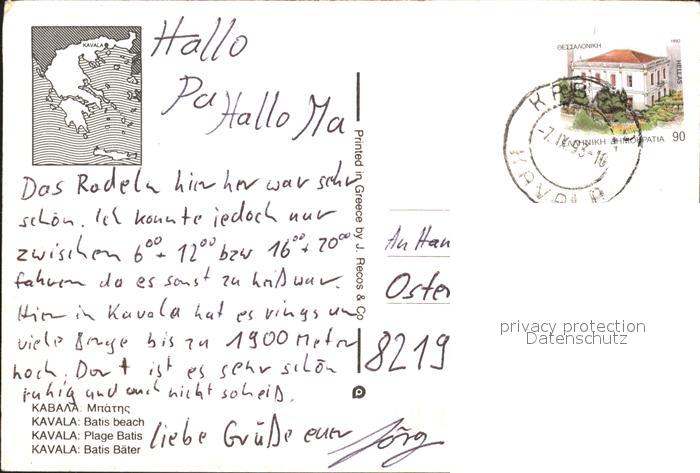 KAVALA
Hallo
Pa Hallo Ma
Das Radeln hier her war sehr
schön. Ich konnte jedoch nur
zwischen 6⁰⁰ + 12⁰⁰ bzw 16⁰⁰ + 20⁰⁰
fahren da es sonst zu heiß war.
Hier in Kavala hat es rings um
viele Berge bis zu 1900 Meter
hoch. Dort ist es sehr schön
ruhig und auch nicht so heiß.
liebe Grüße euer Jörg
ΚΑΒΑΛΑ: Μπάτης
KAVALA: Batis beach
KAVALA: Plage Batis
KAVALA: Batis Bäter
Printed in Greece by J. Recos & Co
ΘΕΣΣΑΛΟΝΙΚΗ
HELLAS
ΔΗΜΟΚΡΑΤΙΑ 90
-7.IX.93-10
An
Oster
8219
privacy protection
Datenschutz